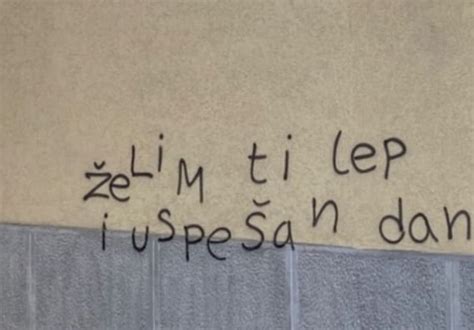 želiM ti lep
i uspešan dan